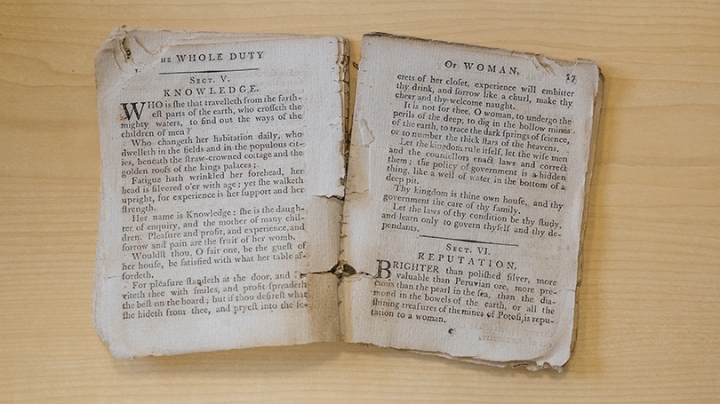 HE WHOLE DUTY
SECT. V.
KNOWLEDGE.
WHO is she that travelleth from the farth-
est parts of the earth, who crosseth the
mighty waters, to find out the ways of the
children of men?
Who changeth her habitation daily, who
dwelleth in the fields and in the populous cit-
ies, beneath the straw-crowned cottage and the
golden roofs of the kings palaces;
Fatigue hath wrinkled her forehead, her
head is silvered o'er with age; yet she walketh
upright, for experience is her support and her
strength.
Her name is Knowledge: she is the daugh-
ter of enquiry, and the mother of many chil-
dren. Pleasure and profit, and experience, and
sorrow and pain are the fruit of her womb.
Wouldst thou, O fair one, be the guest of
her house, be satisfied with what her table af-
fordeth.
For pleasure standeth at the door, and
viteth thee with smiles, and profit spreadeth
the best on the board; but if thou desirest what
she hideth from thee, and pryest into the se-
OF WOMAN.
crets of her closet, experience will embitter
thy drink, and sorrow like a churl, make thy
cheer and thy welcome naught.
It is not for thee, O woman, to undergo the
perils of the deep, to dig in the hollow mines
of the earth, to trace the dark springs of science,
or to number the thick stars of the heavens.
Let the kingdom rule itself, let the wise men
and the counsellors enact laws and correct
them; the policy of government is a hidden
thing, like a well of water in the bottom of a
deep pit.
Thy kingdom is thine own house, and thy
government the care of thy family.
Let the laws of thy condition be thy study,
and learn only to govern thyself and thy de-
pendants.
SECT. VI.
REPUTATION.
BRIGHTER than polished silver, more
valuable than Peruvian ore, more pre-
cious than the pearl in the sea, than the dia-
mond in the bowels of the earth, or all the
shining treasures of the mines of Potosi, is repu-
tation to a woman.